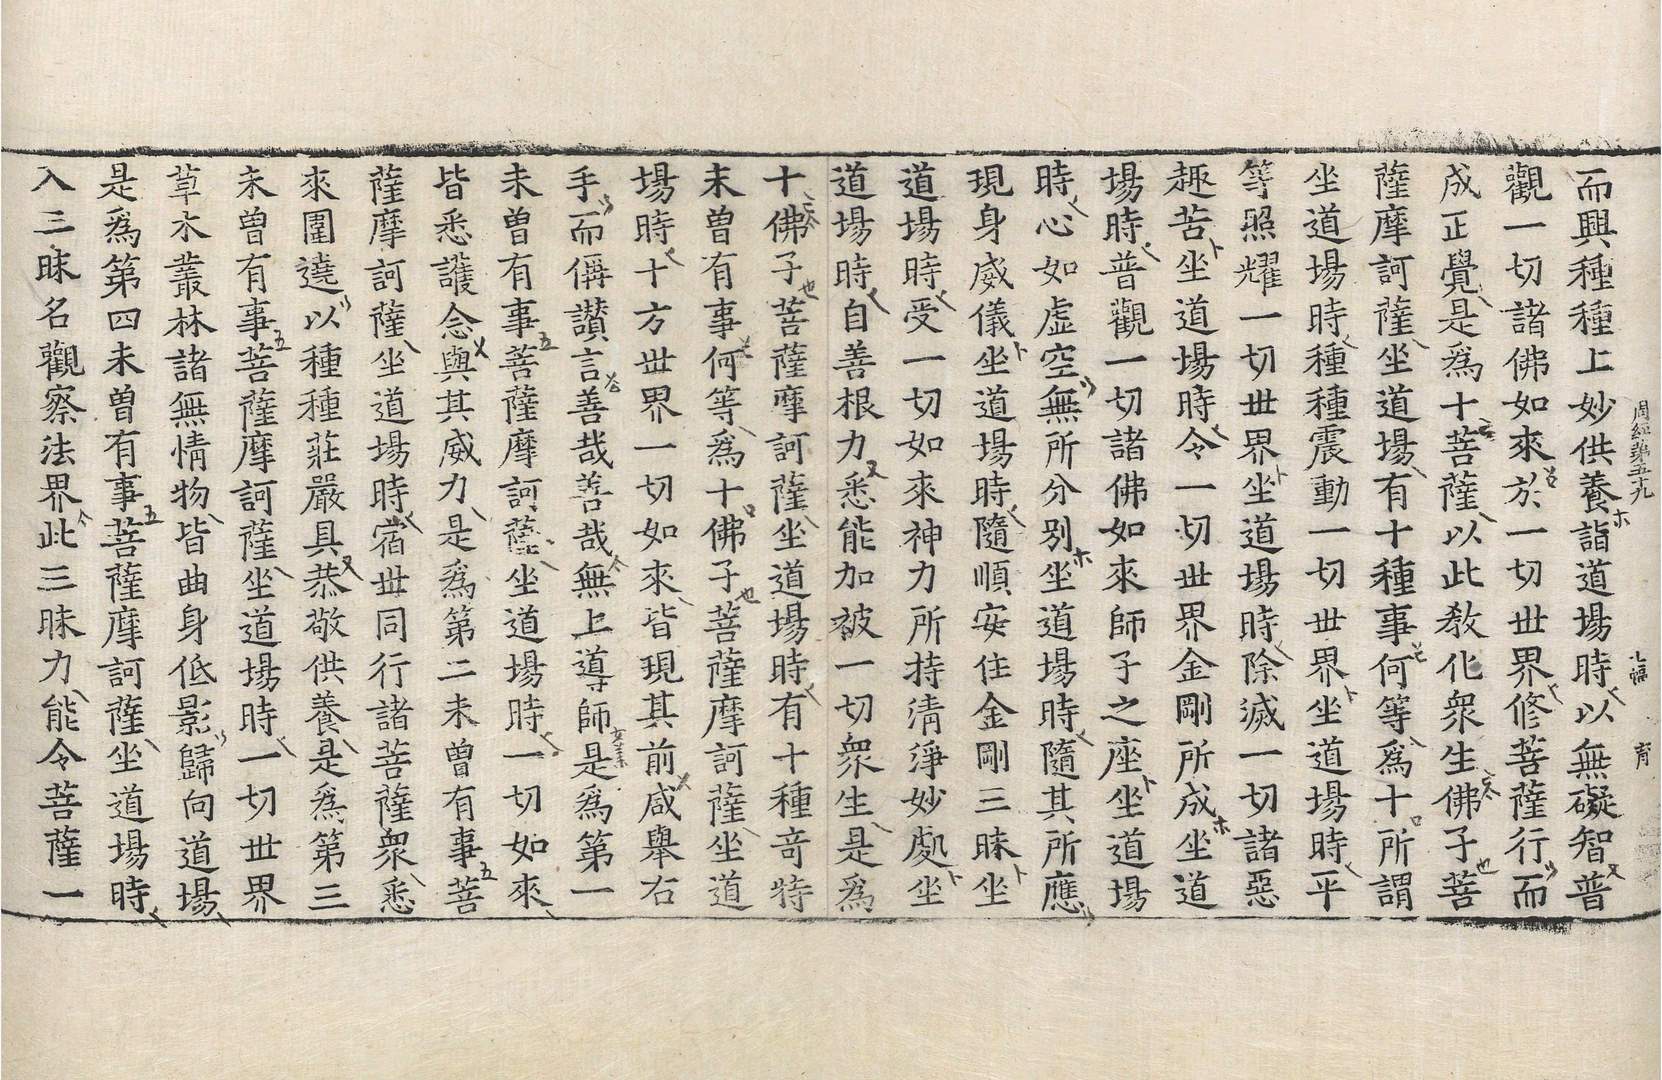 周經第五十九 七幅 育
而興種種上妙供養詣道場時以無礙智普
觀一切諸佛如來於一切世界修菩薩行而
成正覺是爲十菩薩以此教化衆生佛子菩
薩摩訶薩坐道場有十種事何等爲十所謂
坐道場時種種震動一切世界坐道場時平
等照耀一切世界坐道場時除滅一切諸惡
趣苦坐道場時令一切世界金剛所成坐道
場時普觀一切諸佛如來師子之座坐道場
時心如虛空無所分別坐道場時隨其所應
現身威儀坐道場時隨順安住金剛三昧坐
道場時受一切如來神力所持清淨妙處坐
道場時自善根力悉能加被一切衆生是爲
十佛子菩薩摩訶薩坐道場時有十種奇特
未曾有事何等爲十佛子菩薩摩訶薩坐道
場時十方世界一切如來皆現其前咸舉右
手而偁讚言善哉善哉無上導師是爲第一
未曾有事菩薩摩訶薩坐道場時一切如來
皆悉護念與其威力是爲第二未曾有事菩
薩摩訶薩坐道場時宿世同行諸菩薩衆悉
來圍遶以種種莊嚴具恭敬供養是爲第三
未曾有事菩薩摩訶薩坐道場時一切世界
草木叢林諸無情物皆曲身低影歸向道場
是爲第四未曾有事菩薩摩訶薩坐道場時
入三昧名觀察法界此三昧力能令菩薩一